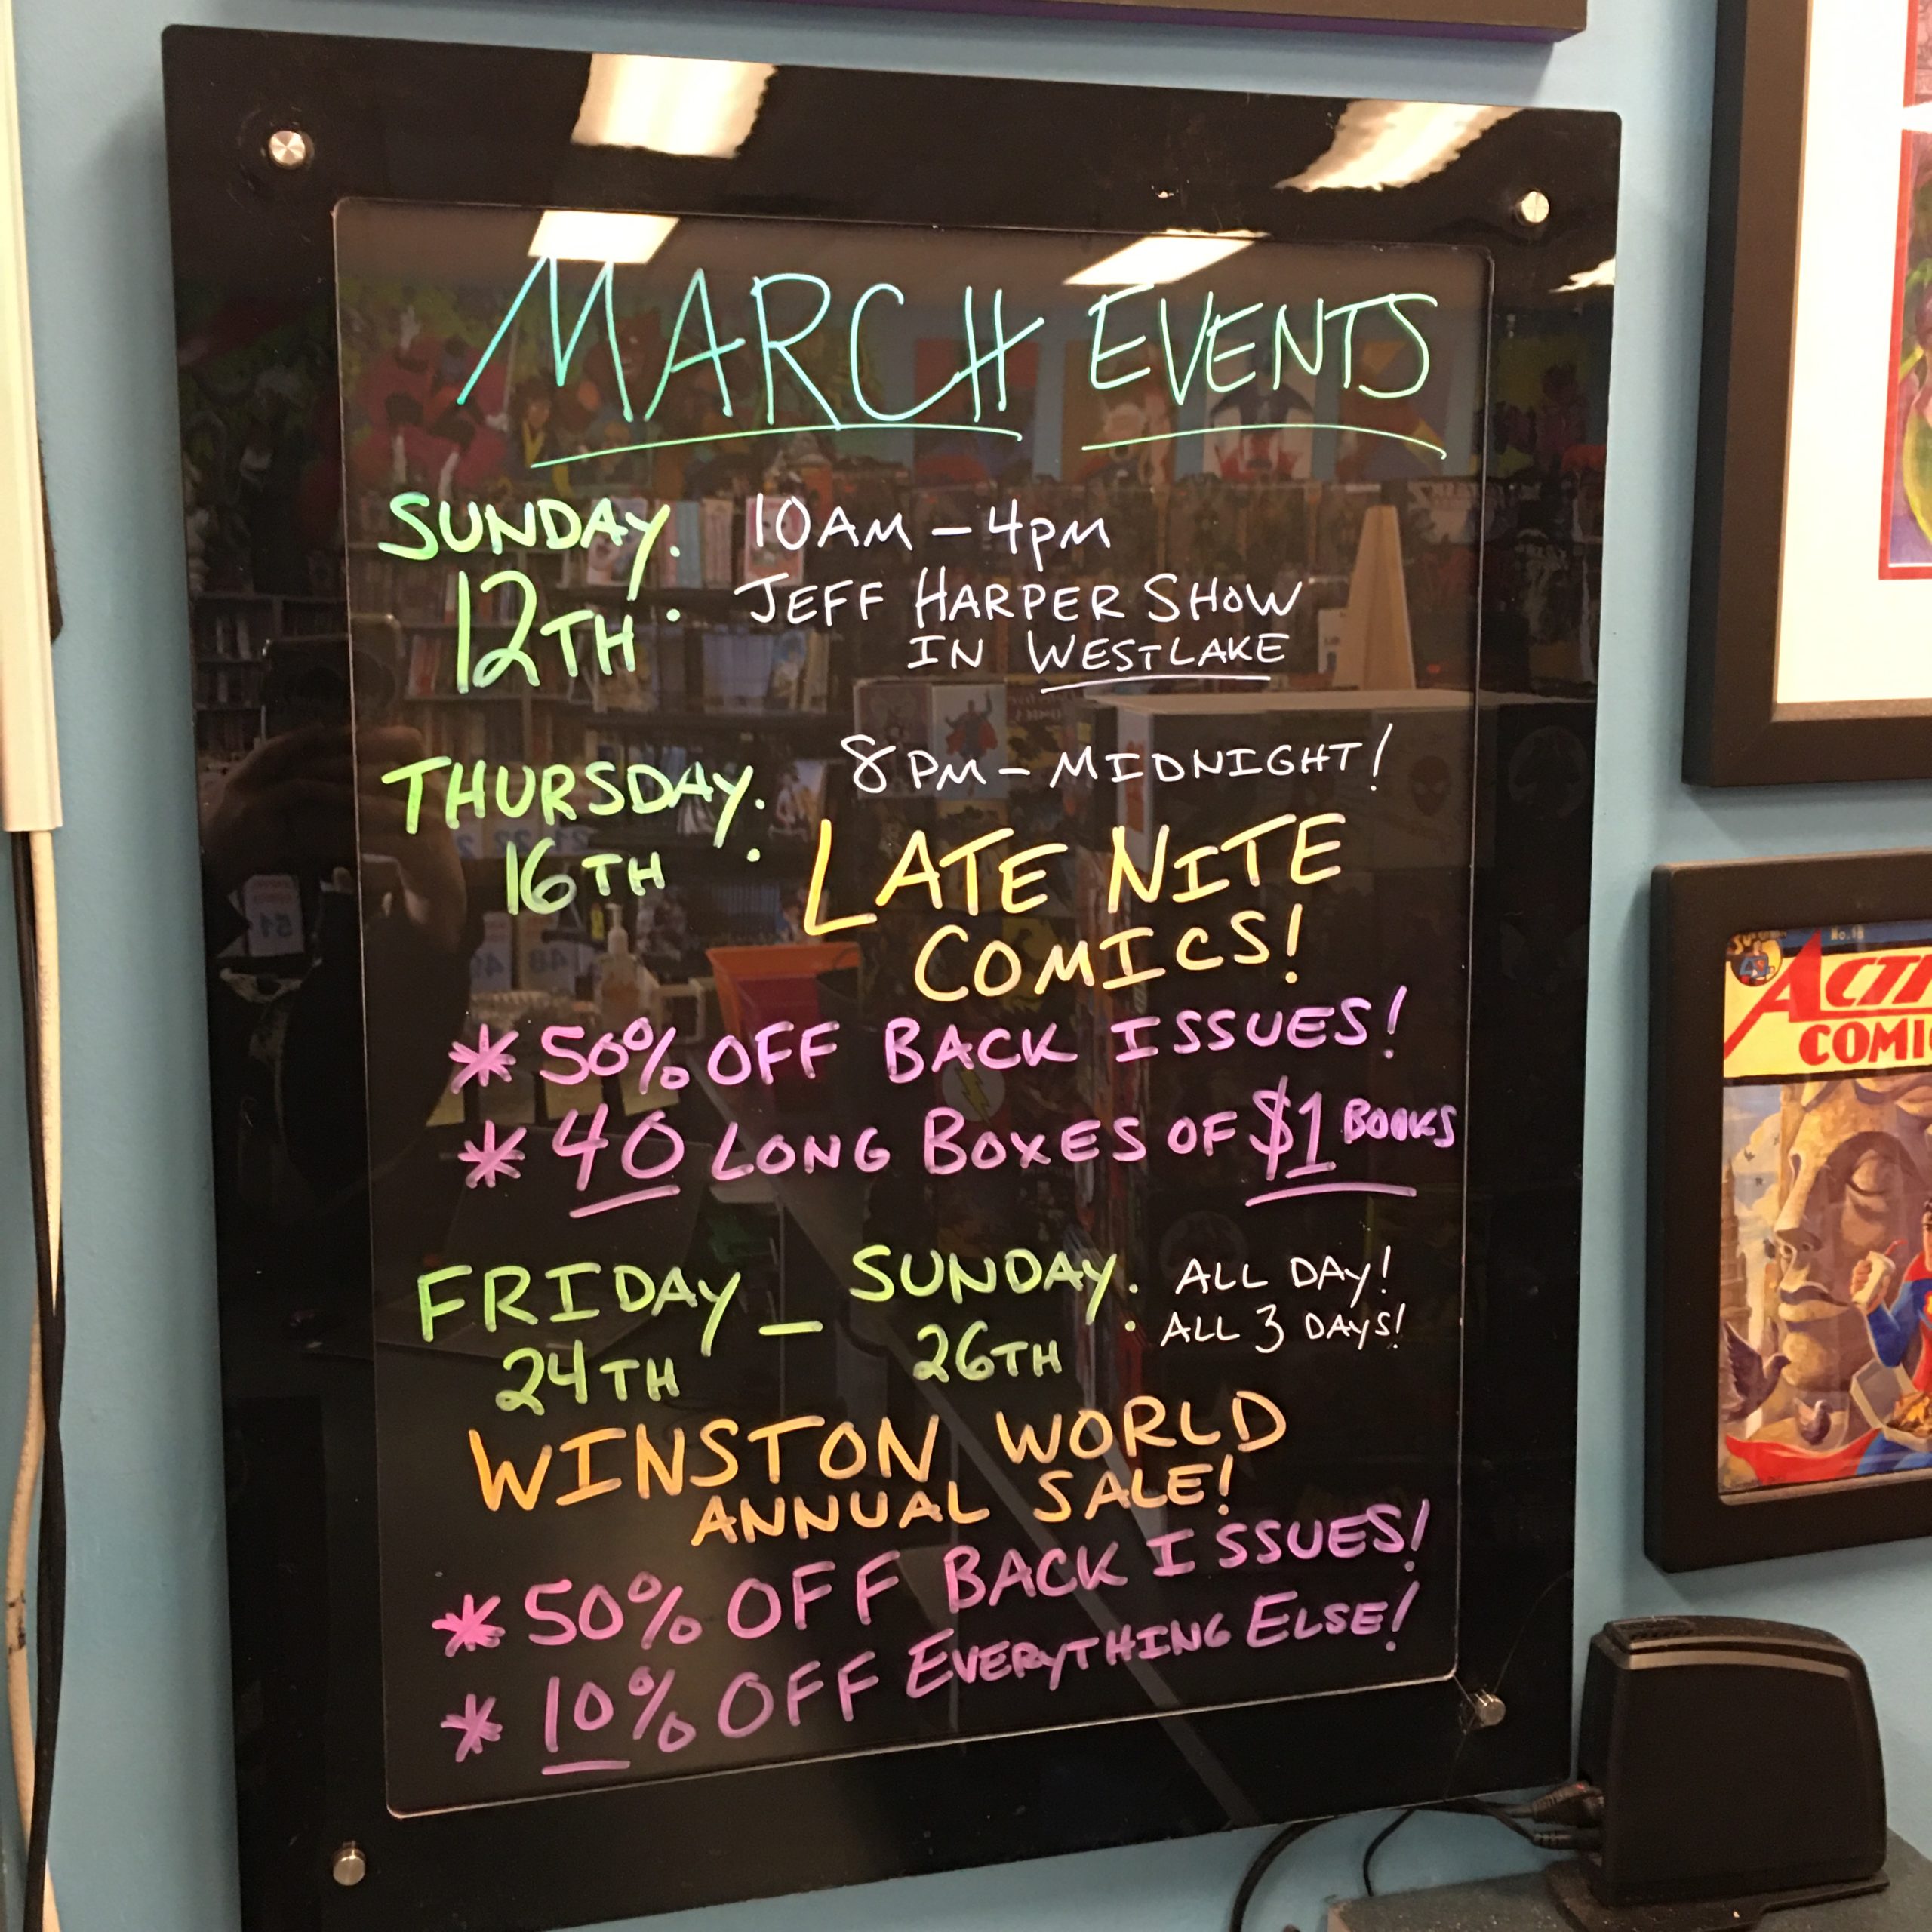 MARCH EVENTS
SUNDAY 12TH : 10AM - 4PM
JEFF HARPER SHOW
IN WESTLAKE
THURSDAY 16TH : 8PM - MIDNIGHT!
LATE NITE
COMICS!
* 50% OFF BACK ISSUES!
* 40 LONG BOXES OF $1 BOOKS
FRIDAY 24TH - SUNDAY 26TH : ALL DAY!
ALL 3 DAYS!
WINSTON WORLD
ANNUAL SALE!
* 50% OFF BACK ISSUES!
* 10% OFF EVERYTHING ELSE!
No. 18